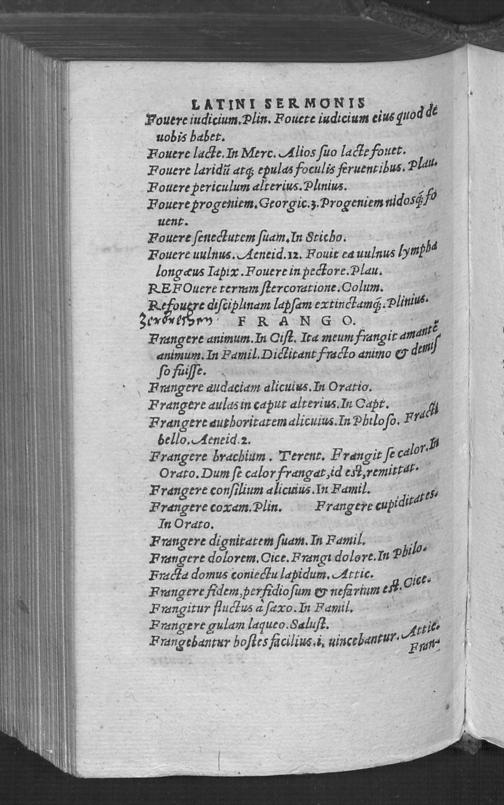 LATINI SERMONIS
Fouere iudicium. Plin. Fouete iudicium eius quod de
uobis habet.
Fouere lacte. In Merc. Alios suo lacte fouet.
Fouere laridũ atq; epulas foculis feruentibus. Plau.
Fouere periculum alterius. Plinius.
Fouere progeniem. Georgic. 3. Progeniem nidosq́; fo
uent.
Fouere senectutem suam. In Sticho.
Fouere uulnus. Aeneid. 12. Fouit ea uulnus lympha
longæus Iapix. Fouere in pectore. Plau.
REFOuere terram stercoratione. Colum.
Refouere disciplinam lapsam extinctamq́;. Plinius.
Zerbrechen FRANGO.
Frangere animum. In Cist. Ita meum frangit amantẽ
animum. In Famil. Dictitant fracto animo & demis
so fuisse.
Frangere audaciam alicuius. In Oratio.
Frangere aulas in caput alterius. In Capt.
Frangere authoritatem alicuius. In Philoso. Fracti
bello. Aeneid. 2.
Frangere brachium. Terent. Frangit se calor. In
Orato. Dum se calor frangat, id est, remittat.
Frangere consilium alicuius. In Famil.
Frangere coxam. Plin. Frangere cupiditates.
In Orato.
Frangere dignitatem suam. In Famil.
Frangere dolorem. Cice. Frangi dolore. In Philo.
Fracta domus coniectu lapidum. Attic.
Frangere fidem, perfidiosum & nefarium est. Cice.
Frangitur fluctus à saxo. In Famil.
Frangere gulam laqueo. Salust.
Frangebantur hostes facilius .i. uincebantur. Attic.
Fran-